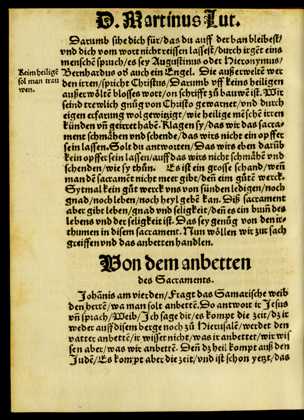 D. Martinus Lut.
Darumb sihe dich für/das du auff der ban bleibest/
vnd dich vom wort nit reissen lassest/durch irgēt eins
menschē spruch/es sey Augustinus oder Hieronymus/
Keim heiligē
sol man traw
wen.
Bernhardus oð auch ein Engel. Die außerwelte wer
den irren/spricht Christus/Darumb vff keins heiligen
außerwölte blosses wort/on schrifft zů bauwē ist. Wir
seind trewlich gnůg von Christo gewarnet/vnd durch
eigen erfarung wol gewitziget/wie heilige mēschē irren
künden vñ geirret habē. Klagen sy/das wir das sacra-
ment schmähen vnd schende/das wirs nicht ein opffer
sein lassen. Solt du antworten/Das wirs eben darūb
kein opffer sein lassen/auff das wirs nicht schmähē vnd
schenden/wie sy thůn. Es ist ein grosse schand/wenn
man dē sacramēt nicht meer gibt/deñ eim gůtē werck.
Sytmal kein gůt werck vns von sünden ledigen/noch
gnad/noch leben/noch heyl gebē kan. Diß sacrament
aber gibt leben/gnad vnd seligkeit/deñ es ein bunñ des
lebens vnd der seligkeit ist. Das sey genůg von den ir-
thumen in disem sacrament. Nun wöllen wir zůr sach
greiffen vnd das anbetten handlen.
Von dem anbetten
des Sacraments.
Johānis am vierden/Fragt das Samarische weib
den herrē/wa man solt anbettē. Do antwort ir Jesus
vñ sprach/Weib/Ich sage dir/es kompt die zeit/dz ir
weder auff disem berge noch zů Jerusalē/werdet den
vatter anbettē/ir wisset nicht/was ir anbettet/wir wis
sen aber/was wir anbettē. Deñ dz heil kompt auß den
Judē/Es kompt aber die zeit/vnd ist schon yetzt/das